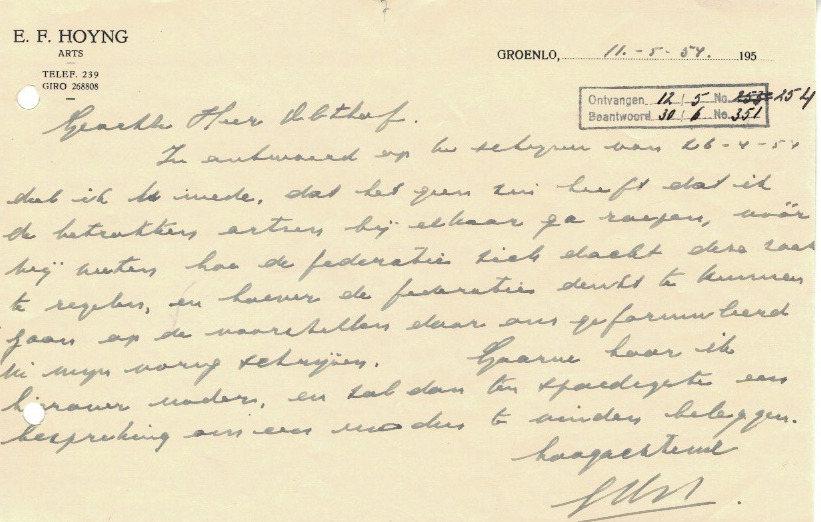 E. F. HOYNG
ARTS
TELEF. 239
GIRO 268808
GROENLO, 11.-5-54. 195
Ontvangen 12 / 5 No. 253 254
Beantwoord 30 / 6 No. 351
Geachte Heer
In antwoord op Uw schrijven van 26-4-54
deel ik U mede, dat het geen zin heeft dat ik
de betrokken artsen bij elkaar ga roepen, vóór
wij weten hoe de federatie zich dacht deze zaak
te regelen, en hoever de federatie denkt te kunnen
gaan op de voorstellen door ons geformuleerd
in mijn vorig schrijven. Gaarne hoor ik
hierover nader, en zal dan ten spoedigste een
bespreking om een modus te vinden beleggen.
hoogachtend